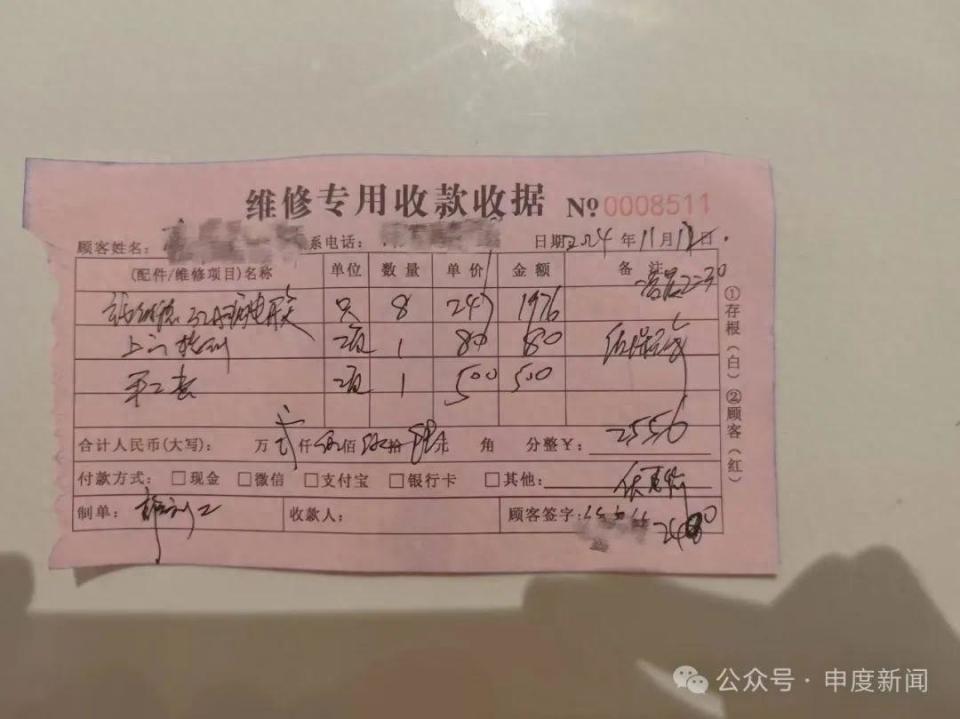 维修专用收款收据 № 0008511
顾客姓名: 系电话: 日期 2024 年 11 月 12 日
(配件/维修项目)名称 单位 数量 单价 金额 备注
只 8 247 1976
上门 项 1 80 80
项 1 500 500
合计人民币(大写): 万 贰 仟 伍 佰 伍 拾 陆 元 角 分整¥: 2556
付款方式: □现金 □微信 □支付宝 □银行卡 □其他: 优惠
制单: 收款人: 顾客签字: 2480
①存根(白)②顾客(红)
公众号·申度新闻